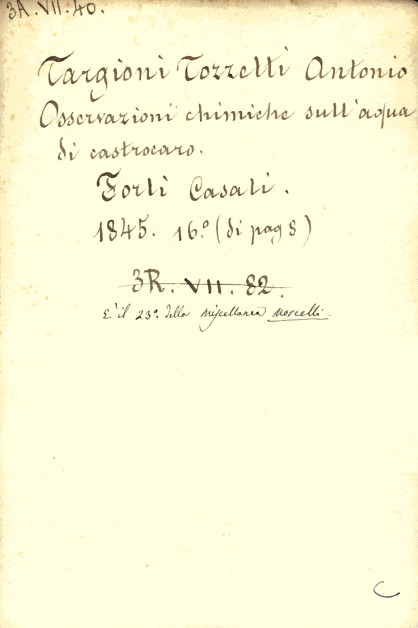 3A. VII. 40.
Targioni Tozzetti Antonio
Osservazioni chimiche sull'aqua
di castrocaro.
Forlì Casali.
1845. 16.º (di pag 8)
3R. VII. 82.
E' il 23º. della Miscellanea Morcelli.
C